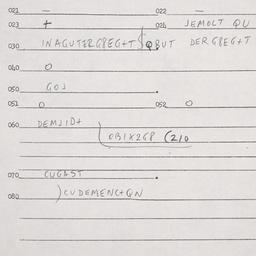 021 — 022 —
023 + 024 JEMOLT QU
030 INAGUTERGREG+T QBUT DERGREG+T
040 O
050 GOJ .
051 O 052 O
060 DEMJID+
OBIX2GP (210
070 CUGAST .
080 )CUDEMENC+QN